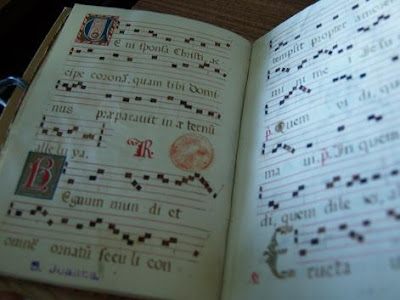 V E ni sponsa Christi ac
cipe coronā, quam tibi domi
nus præparavit in æternū
alle lu ya. R.
R Egnum mun di et
omnē ornatū seculi con
S. Juana
tempsit propter
mi ni me i Jesu
p. Quem vi di, qu
ma vi, p. In quem
di, quem dile
E ructa